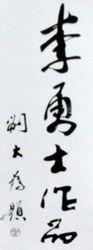 李勇士作品
嗣大为题